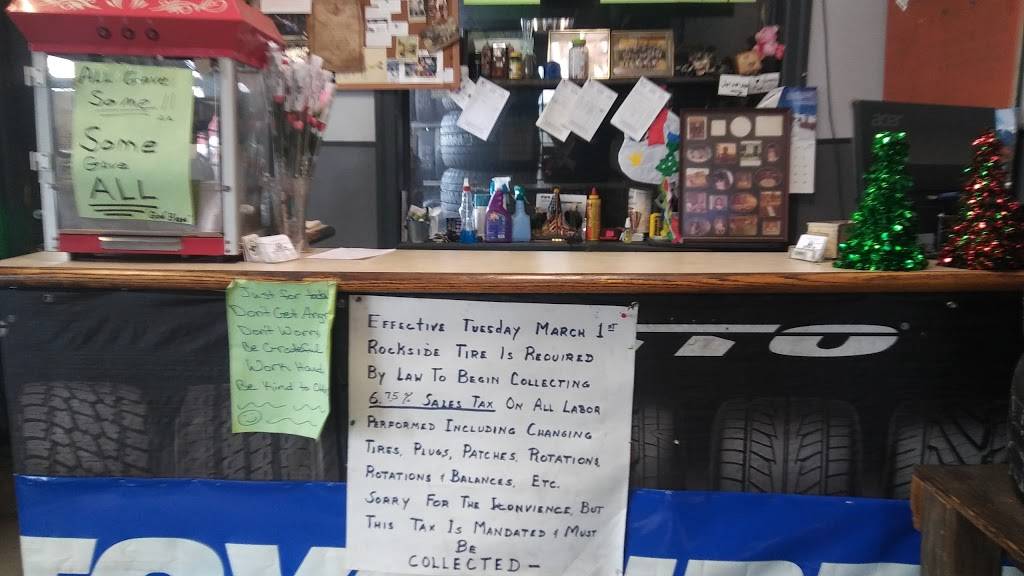 ALL Gave
Some !!
Some
Gave
ALL
God Bless
acer
Just for today
Don't Get Angry
Don't Worry
Be Grateful
Work Hard
Be Kind to Others
EFFECTIVE TUESDAY MARCH 1ST
ROCKSIDE TIRE IS REQUIRED
BY LAW TO BEGIN COLLECTING
6.75% SALES TAX ON ALL LABOR
PERFORMED INCLUDING CHANGING
TIRES, PLUGS, PATCHES, ROTATIONS,
ROTATIONS & BALANCES, ETC.
SORRY FOR THE ICONVIENCE, BUT
THIS TAX IS MANDATED & MUST
BE
COLLECTED —
TTO®